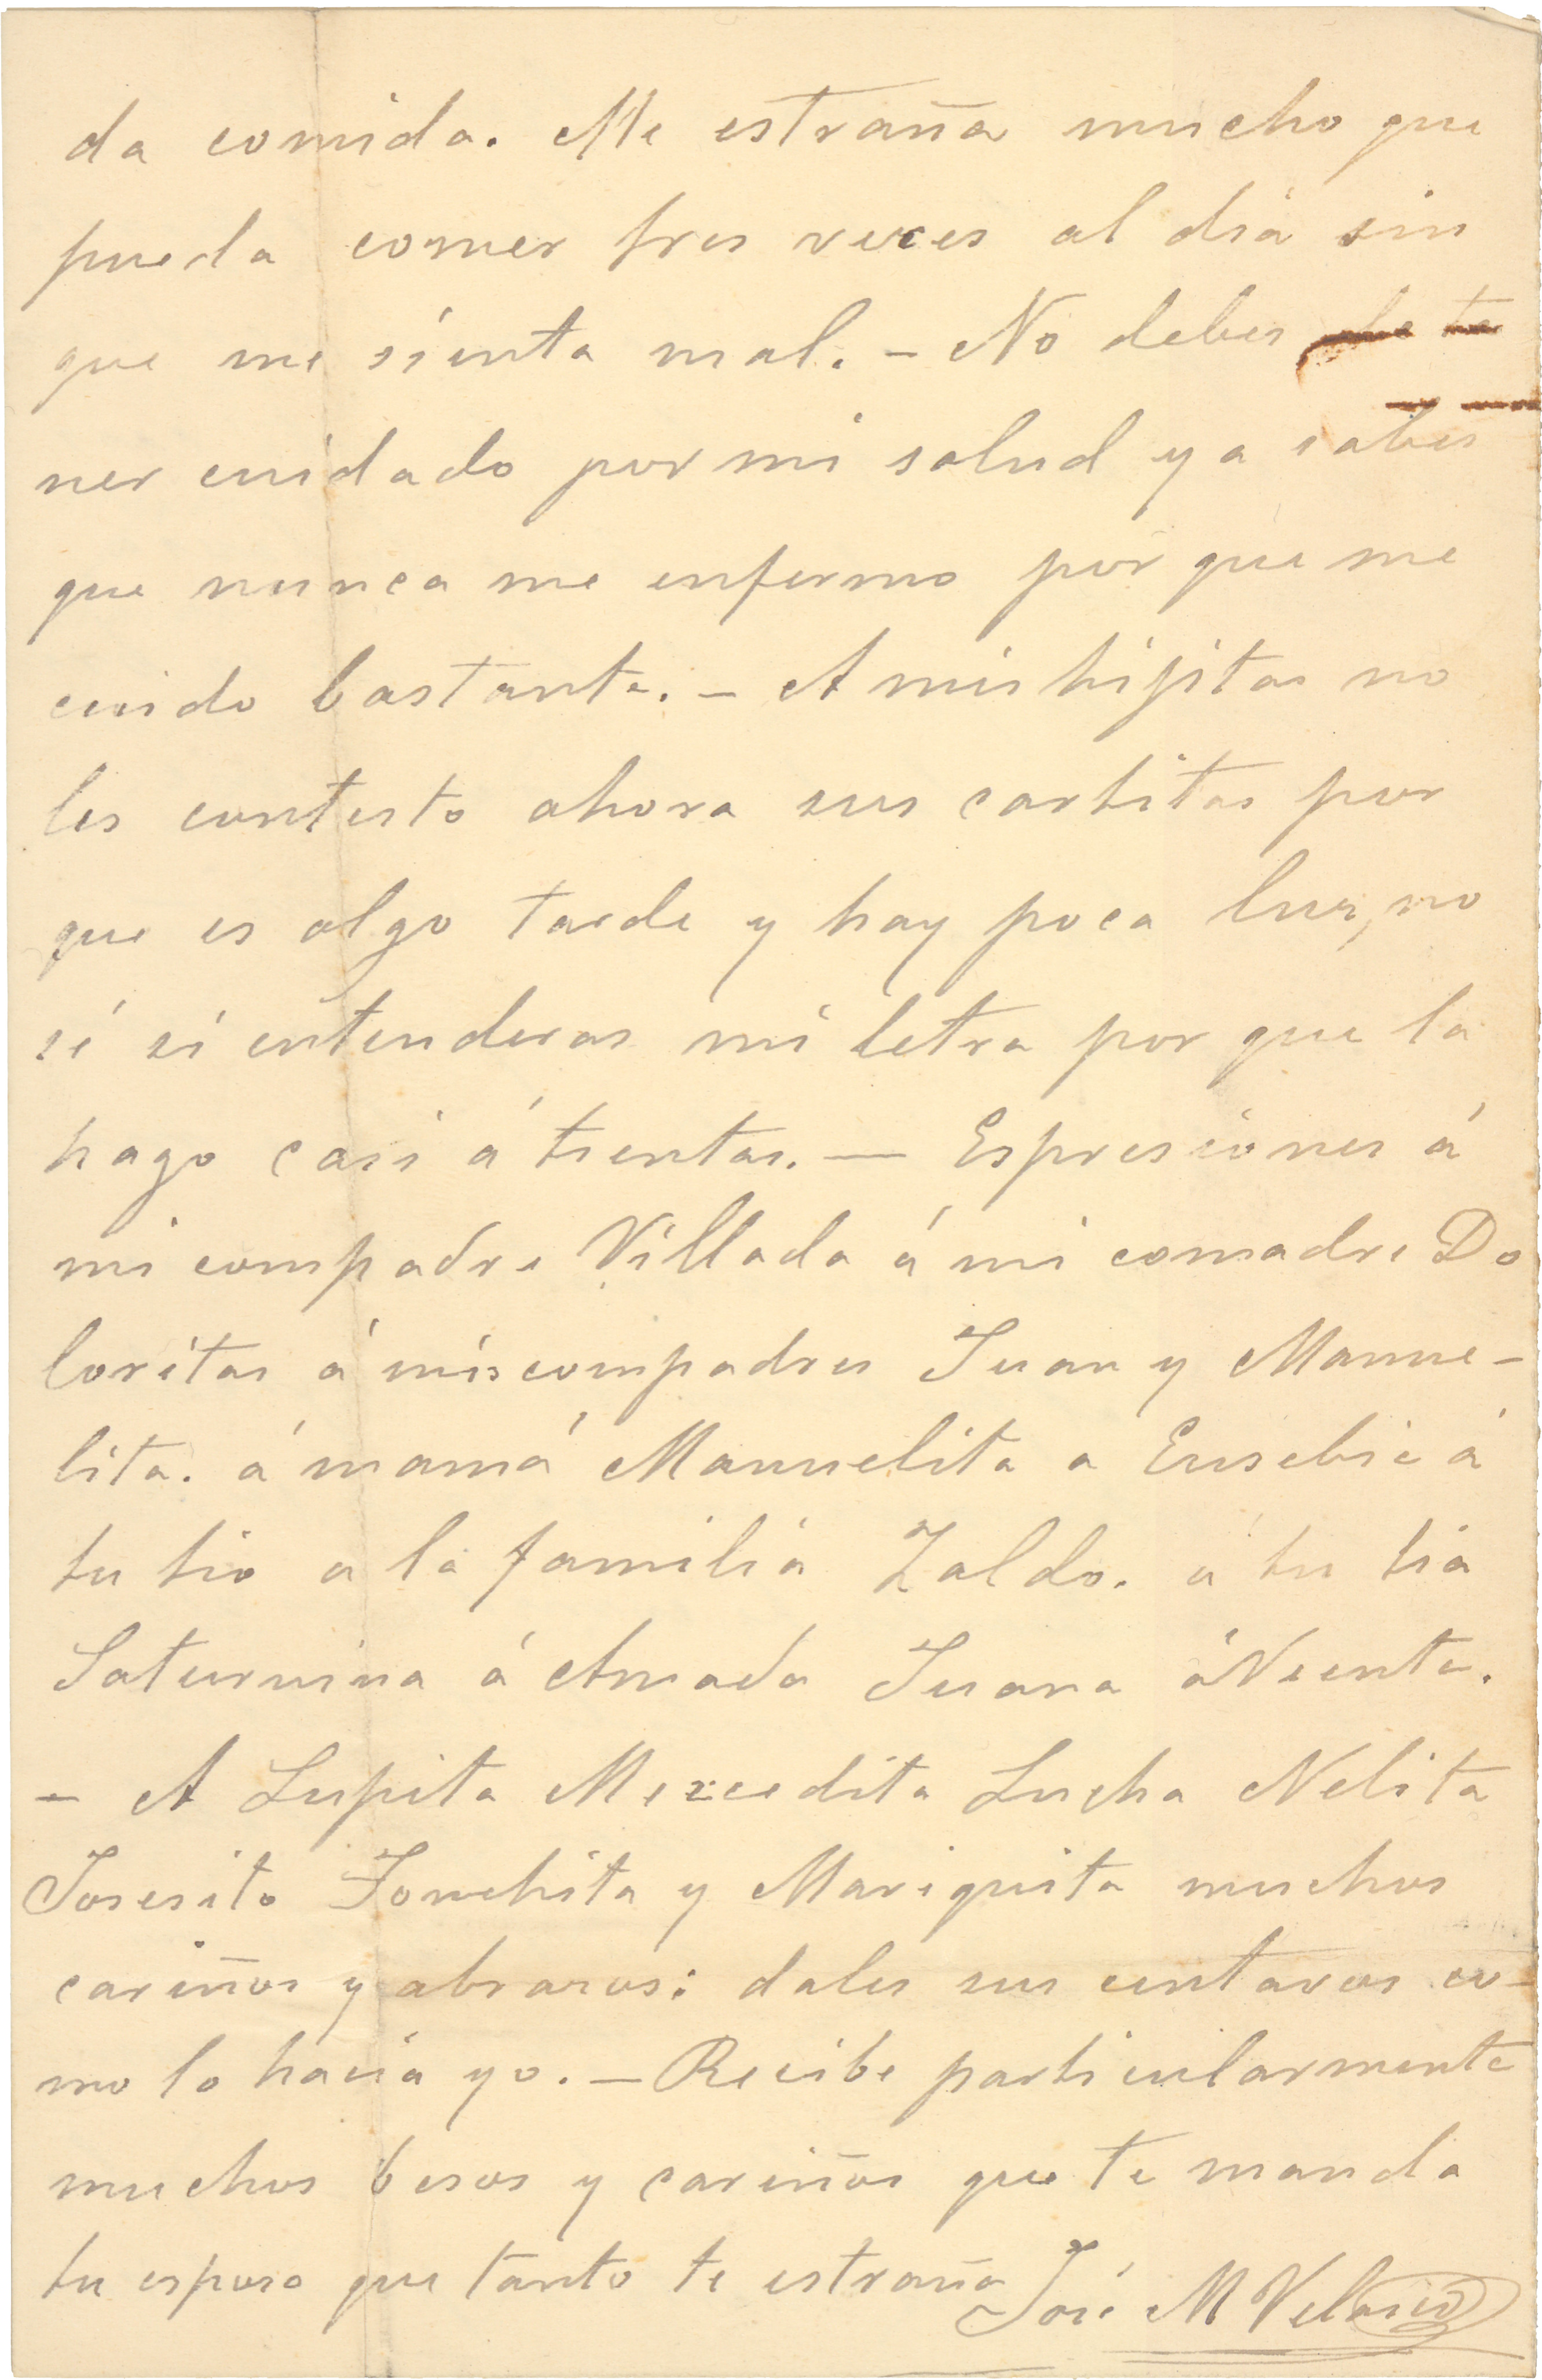 da comida. Me estraña mucho que
pueda comer tres veces al dia sin
que me sienta mal. - No debes de te
ner cuidado por mi salud ya sabes
que nunca me enfermo por que me
cuido bastante. - A mis hijitas no
les contesto ahora sus cartitas por
que es algo tarde y hay poca luz, no
sé si entenderas mi letra por que la
hago casi á tientas. — Espresiones á
mi compadre Villada á mi comadre Do
loritas á mis compadres Juan y Manue-
lita. á mamá Manuelita a Eusebie á
tu tio a la familia Zaldo. a tu tia
Saturnina á Amada Juana á Vicenta.
- A Lupita Mercedita Lucha Nelita
Josesito Conchita y Mariquita muchos
cariños y abrazos: dales sus centavos co-
mo lo hacia yo. - Recibe particularmente
muchos besos y cariños que te manda
tu esposo que tanto te estraña José M Velasco